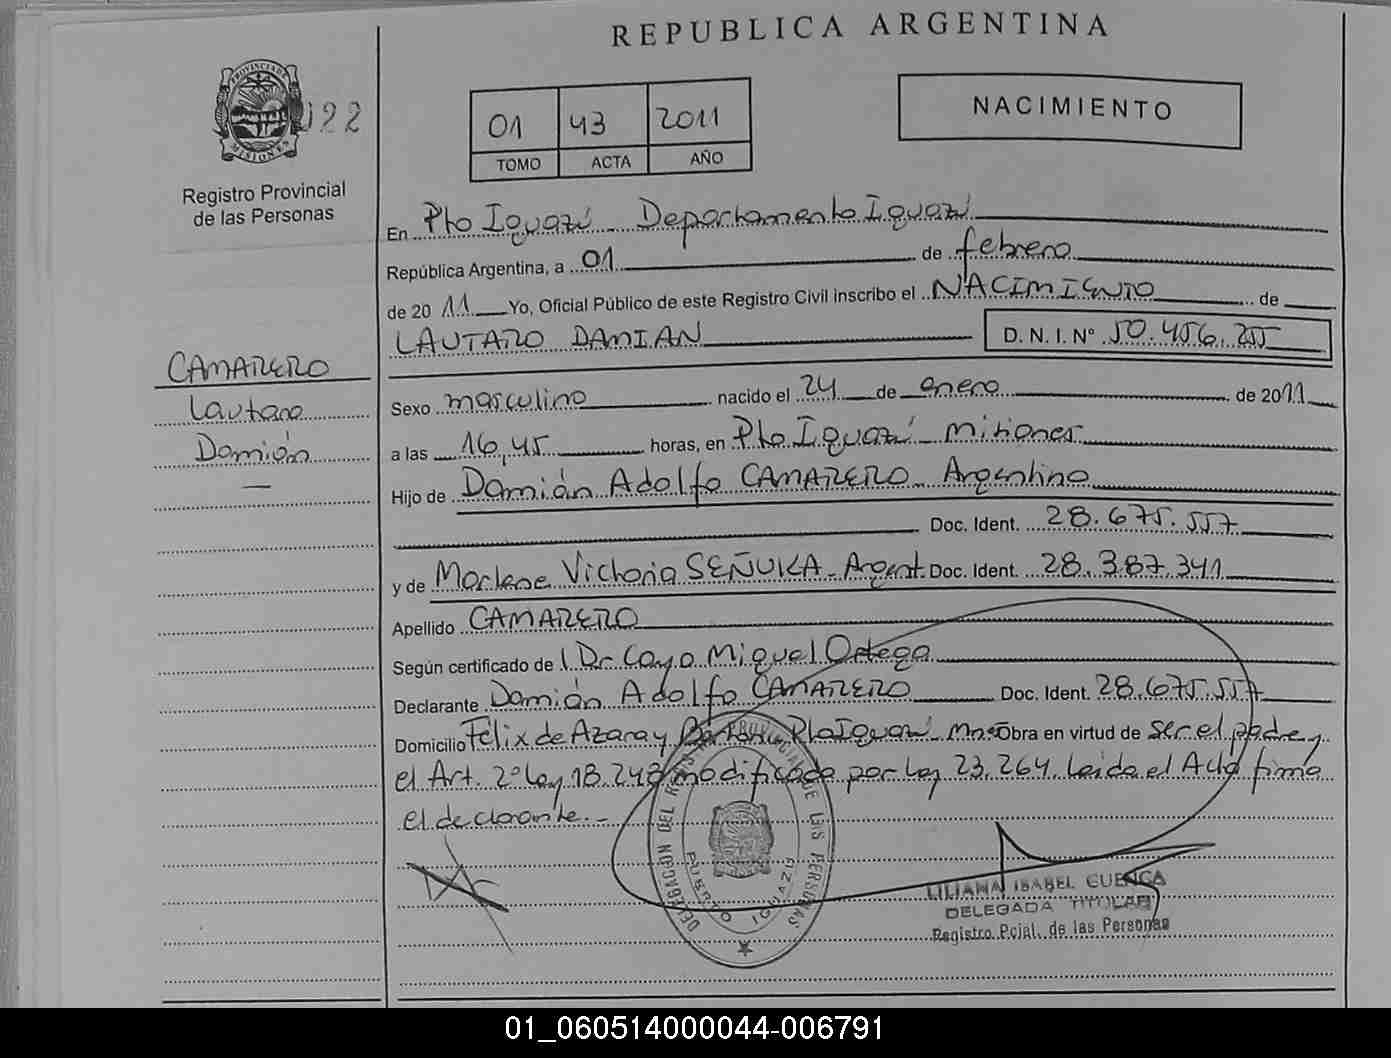 REPUBLICA ARGENTINA
PROVINCIA DE
MISIONES
022
Registro Provincial
de las Personas
01 43 2011
TOMO ACTA AÑO
NACIMIENTO
En Pto Iguazú - Departamento Iguazú
República Argentina, a 01 de febrero
de 20 11 Yo, Oficial Público de este Registro Civil inscribo el NACIMIENTO de
LAUTARO DAMIAN D. N. I. N° 50.456.255
CAMARERO
Lautaro
Damián
—
Sexo masculino nacido el 24 de enero de 2011
a las 16,45 horas, en Pto Iguazú - Misiones
Hijo de Damián Adolfo CAMARERO - Argentino
Doc. Ident. 28.675.557
y de Marlene Victoria SEÑUKA - Argent. Doc. Ident. 28.387.341
Apellido CAMARERO
Según certificado de Dr Cayo Miguel Ortega
Declarante Damián Adolfo CAMARERO Doc. Ident. 28.675.557
Domicilio Félix de Azara y Pto Iguazú Obra en virtud de ser el padre y
el Art. 2° Ley 18.248 modificado por Ley 23.264 leída el Acta firma
el declarante.-
DELEGACION DEL REGISTRO PROVINCIAL DE LAS PERSONAS
PUERTO IGUAZU
LILIANA ISABEL CUENCA
DELEGADA TITULAR
Registro Pcial. de las Personas
01_060514000044-006791